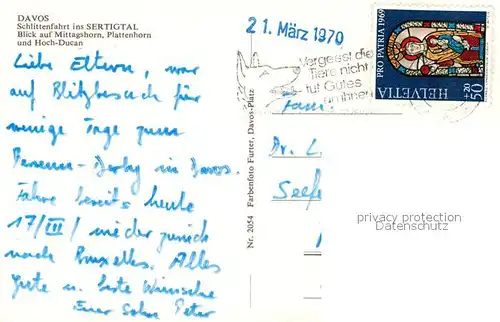 DAVOS
Schlittenfahrt ins SERTIGTAL
Blick auf Mittagshorn, Plattenhorn
und Hoch-Ducan
Liebe Eltern, war
auf Blitzbesuch für
wenige Tage zum
Derby in Davos.
Fahre bereits heute
17/III/ wieder zurück
nach Bruxelles. Alles
Gute u. beste Wünsche
Euer Sohn Peter
Nr. 2054 Farbenfoto Furter, Davos-Platz
21. März 1970
Vergesst die
Tiere nicht
tut Gutes
an ihnen
PRO PATRIA 1969
HELVETIA
50+20
Fam
Dr. L
Seefe
privacy protection
Datenschutz